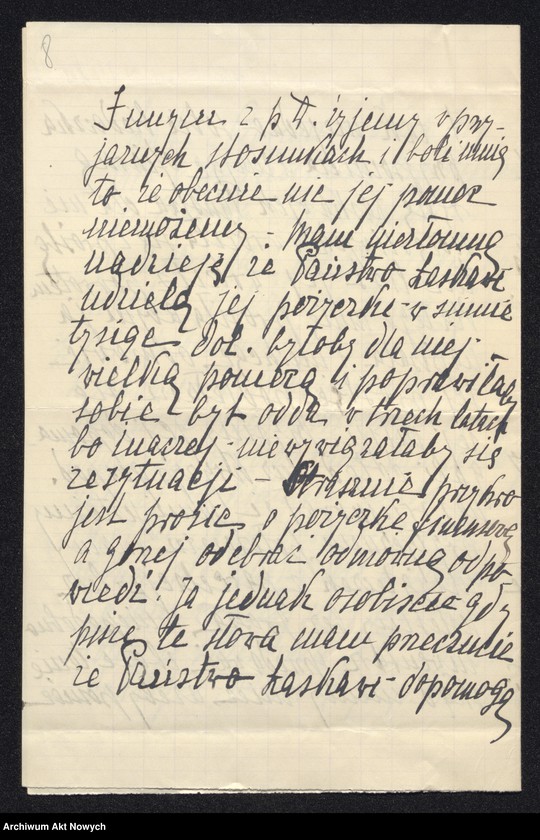 8
z p. T. żyjemy w przy-
jaznych stosunkach i boli mnie
to że obecnie nic jej pomoc
niemożemy – Mam niezłomną
nadzieję że Państwo Łaskawi
udzielą jej pożyczkę w sumie
tysiąc dol. byłoby dla niej
wielką pomocą i poprawiłaby
sobie byt odda w trzech latach
bo inaczej niewywiązałaby się
ze sytuacji – Strasznie przykro
jest prosić o pożyczkę finansową
a gorzej odebrać odmowną odpo-
wiedź. Ja jednak osobiście gdy
piszę te słowa mam przeczucie
że Państwo Łaskawi dopomogą
Archiwum Akt Nowych